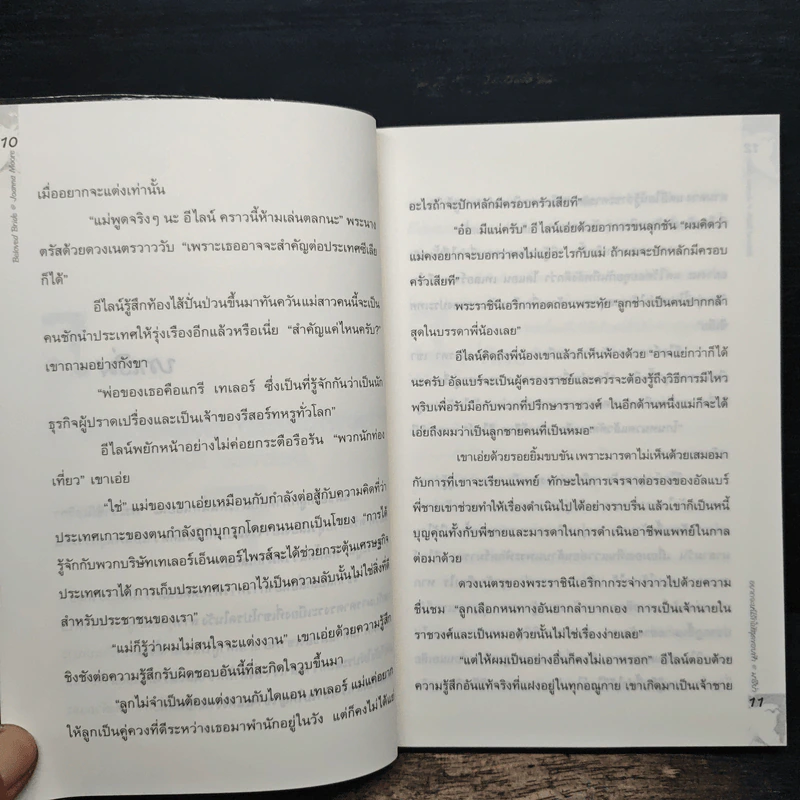 10
Beloved Bride @ Joanna Moore
เมื่ออยากจะแต่งเท่านั้น
“แม่พูดจริงๆ นะ อีไลน์ คราวนี้ห้ามเล่นตลกนะ” พระนาง
ตรัสด้วยดวงเนตรวาววับ “เพราะเธออาจจะสำคัญต่อประเทศซีเลีย
ก็ได้”
อีไลน์รู้สึกท้องไส้ปั่นป่วนขึ้นมาทันควันแม่สาวคนนี้จะเป็น
คนชักนำประเทศให้รุ่งเรืองอีกแล้วหรือเนี่ย “สำคัญแค่ไหนครับ?”
เขาถามอย่างกังขา
“พ่อของเธอคือแกรี เทเลอร์ ซึ่งเป็นที่รู้จักกันว่าเป็นนัก
ธุรกิจผู้ปราดเปรื่องและเป็นเจ้าของรีสอร์ทหรูทั่วโลก”
อีไลน์พยักหน้าอย่างไม่ค่อยกระตือรือร้น “พวกนักท่อง
เที่ยว” เขาเอ่ย
“ใช่” แม่ของเขาเอ่ยเหมือนกับกำลังต่อสู้กับความคิดที่ว่า
ประเทศเกาะของตนกำลังถูกบุกรุกโดยคนนอกเป็นโขยง “การได้
รู้จักกับพวกบริษัทเทเลอร์เอ็นเตอร์ไพรส์จะได้ช่วยกระตุ้นเศรษฐกิจ
ประเทศเราได้ การเก็บประเทศเราเอาไว้เป็นความลับนั้นไม่ใช่สิ่งที่ดี
สำหรับประชาชนของเรา”
“แม่ก็รู้ว่าผมไม่สนใจจะแต่งงาน” เขาเอ่ยด้วยความรู้สึก
ชิงชังต่อความรู้สึกรับผิดชอบอันนี้ที่สะกิดใจวูบขึ้นมา
“ลูกไม่จำเป็นต้องแต่งงานกับไดแอน เทเลอร์ แม่แค่อยาก
ให้ลูกเป็นคู่ควงที่ดีระหว่างเธอมาพำนักอยู่ในวัง แต่ก็คงไม่ได้แย่
อะไรถ้าจะปักหลักมีครอบครัวเสียที”
“อ๋อ มีแน่ครับ” อีไลน์เอ่ยด้วยอาการขนลุกชัน “ผมคิดว่า
แม่คงอยากจะบอกว่าคงไม่แย่อะไรกับแม่ ถ้าผมจะปักหลักมีครอบ
ครัวเสียที”
พระราชินีเอริกาทอดถอนพระทัย “ลูกช่างเป็นคนปากกล้า
สุดในบรรดาพี่น้องเลย”
อีไลน์คิดถึงพี่น้องเขาแล้วก็เห็นพ้องด้วย “อาจแย่กว่าก็ได้
นะครับ อัลแบร์จะเป็นผู้ครองราชย์และควรจะต้องรู้ถึงวิธีการมีไหว
พริบเพื่อรับมือกับพวกที่ปรึกษาราชวงศ์ ในอีกด้านหนึ่งแม่ก็จะได้
เอ่ยถึงผมว่าเป็นลูกชายคนที่เป็นหมอ”
เขาเอ่ยด้วยรอยยิ้มขบขัน เพราะมารดาไม่เห็นด้วยเสมอมา
กับการที่เขาจะเรียนแพทย์ ทักษะในการเจรจาต่อรองของอัลแบร์
พี่ชายเขาช่วยทำให้เรื่องดำเนินไปได้อย่างราบรื่น แล้วเขาก็เป็นหนี้
บุญคุณทั้งกับพี่ชายและมารดาในการดำเนินอาชีพแพทย์ในกาล
ต่อมาด้วย
ดวงเนตรของพระราชินีเอริกากระจ่างวาวไปด้วยความ
ชื่นชม “ลูกเลือกหนทางอันยากลำบากเอง การเป็นเจ้านายใน
ราชวงศ์และเป็นหมอด้วยนั้นไม่ใช่เรื่องง่ายเลย”
“แต่ให้ผมเป็นอย่างอื่นก็คงไม่เอาหรอก” อีไลน์ตอบด้วย
ความรู้สึกอันแท้จริงที่แฝงอยู่ในทุกอณูกาย เขาเกิดมาเป็นเจ้าชาย
11